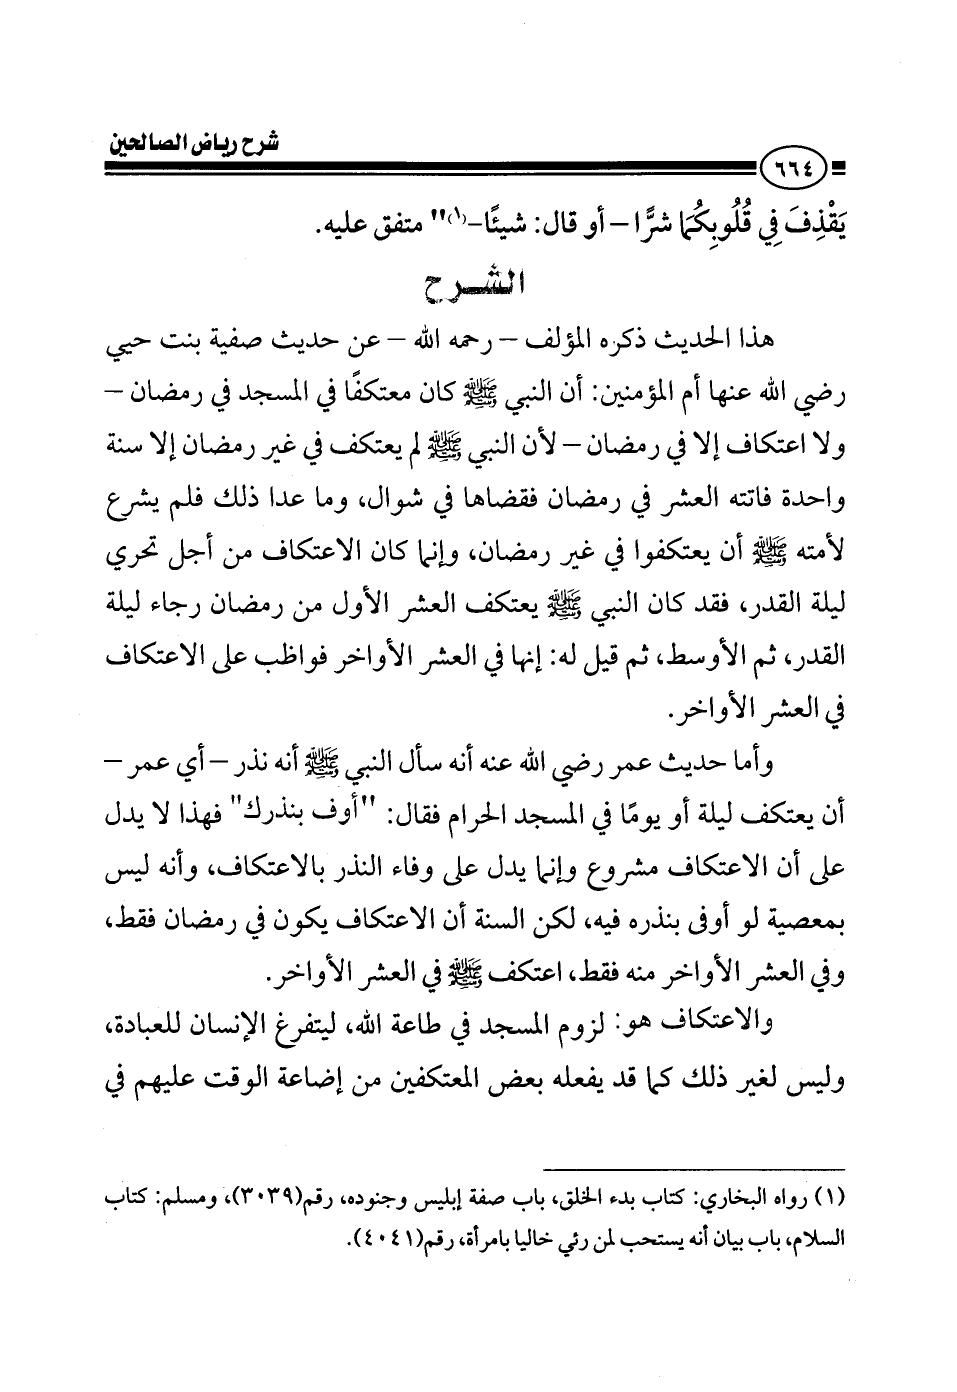 شرح رياض الصالحين
٦٦٤
يَقْذِفَ فِي قُلُوبِكُمَا شرًّا – أو قال: شيئًا–(١)" متفق عليه.
الشرح
هذا الحديث ذكره المؤلف – رحمه الله – عن حديث صفية بنت حيي
رضي الله عنها أم المؤمنين: أن النبي ﷺ كان معتكفًا في المسجد في رمضان –
ولا اعتكاف إلا في رمضان – لأن النبي ﷺ لم يعتكف في غير رمضان إلا سنة
واحدة فاتته العشر في رمضان فقضاها في شوال، وما عدا ذلك فلم يشرع
لأمته ﷺ أن يعتكفوا في غير رمضان، وإنما كان الاعتكاف من أجل تحري
ليلة القدر، فقد كان النبي ﷺ يعتكف العشر الأول من رمضان رجاء ليلة
القدر، ثم الأوسط، ثم قيل له: إنها في العشر الأواخر فواظب على الاعتكاف
في العشر الأواخر.
وأما حديث عمر رضي الله عنه أنه سأل النبي ﷺ أنه نذر – أي عمر –
أن يعتكف ليلة أو يومًا في المسجد الحرام فقال: "أوف بنذرك" فهذا لا يدل
على أن الاعتكاف مشروع وإنما يدل على وفاء النذر بالاعتكاف، وأنه ليس
بمعصية لو أوفى بنذره فيه، لكن السنة أن الاعتكاف يكون في رمضان فقط،
وفي العشر الأواخر منه فقط، اعتكف ﷺ في العشر الأواخر.
والاعتكاف هو: لزوم المسجد في طاعة الله، ليتفرغ الإنسان للعبادة،
وليس لغير ذلك كما قد يفعله بعض المعتكفين من إضاعة الوقت عليهم في
(١) رواه البخاري: كتاب بدء الخلق، باب صفة إبليس وجنوده، رقم(٣٠٣٩)، ومسلم: كتاب
السلام، باب بيان أنه يستحب لمن رئي خاليا بامرأة، رقم(٤٠٤١).